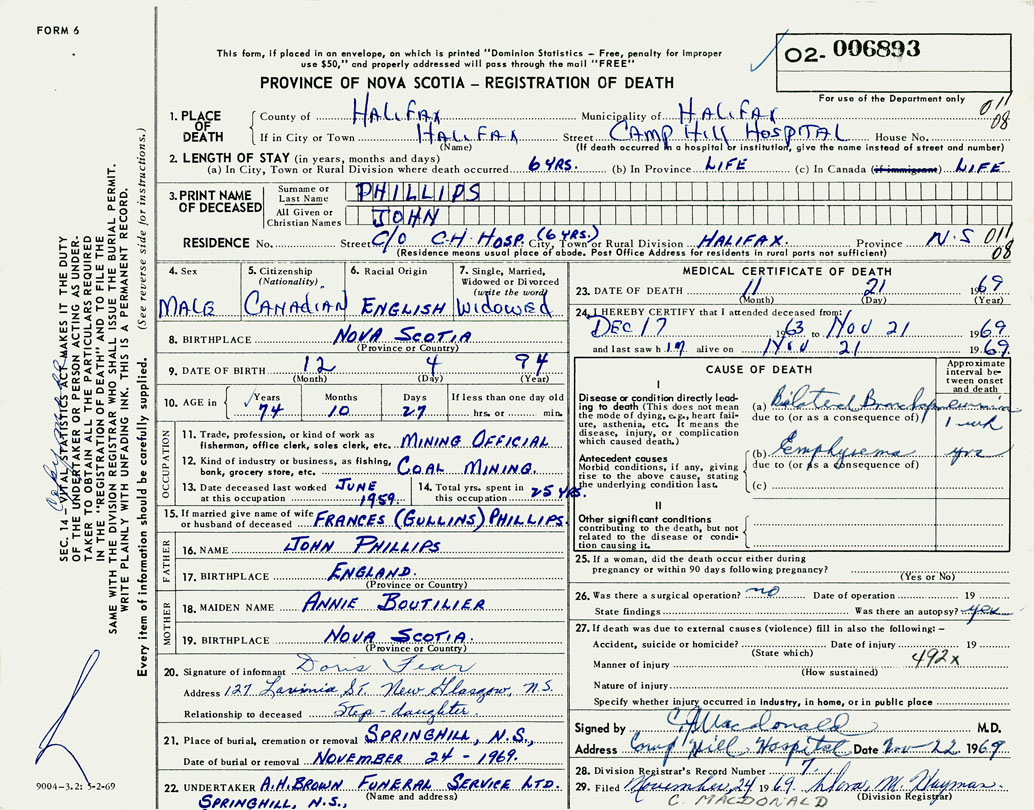 FORM 6
This form, if placed in an envelope, on which is printed "Dominion Statistics – Free, penalty for improper
use $50," and properly addressed will pass through the mail "FREE"
O2- 006893
PROVINCE OF NOVA SCOTIA – REGISTRATION OF DEATH
For use of the Department only
011
08
1. PLACE OF DEATH County of HALIFAX Municipality of HALIFAX
If in City or Town HALIFAX Street CAMP HILL HOSPITAL House No.
(Name) (If death occurred in a hospital or institution, give the name instead of street and number)
2. LENGTH OF STAY (in years, months and days)
(a) In City, Town or Rural Division where death occurred 6 YRS. (b) In Province LIFE (c) In Canada (if immigrant) LIFE
3. PRINT NAME OF DECEASED Surname or Last Name PHILLIPS
All Given or Christian Names JOHN
RESIDENCE No. Street C/O C.H. HOSP. (6 YRS.) City, Town or Rural Division HALIFAX. Province N.S 011
(Residence means usual place of abode. Post Office Address for residents in rural parts not sufficient) 08
4. Sex MALE
5. Citizenship (Nationality) CANADIAN
6. Racial Origin ENGLISH
7. Single, Married, Widowed or Divorced (write the word) WIDOWED
8. BIRTHPLACE NOVA SCOTIA
(Province or Country)
9. DATE OF BIRTH 12 4 94
(Month) (Day) (Year)
10. AGE in Years Months Days If less than one day old
74 10 27 hrs. or min.
OCCUPATION
11. Trade, profession, or kind of work as
fisherman, office clerk, sales clerk, etc. MINING OFFICIAL
12. Kind of industry or business, as fishing,
bank, grocery store, etc. COAL MINING.
13. Date deceased last worked at this occupation JUNE 1959.
14. Total yrs. spent in this occupation 25 YRS.
15. If married give name of wife
or husband of deceased FRANCES (GULLINS) PHILLIPS.
FATHER
16. NAME JOHN PHILLIPS
17. BIRTHPLACE ENGLAND.
(Province or Country)
MOTHER
18. MAIDEN NAME ANNIE BOUTILIER
19. BIRTHPLACE NOVA SCOTIA.
(Province or Country)
20. Signature of informant Doris Fear
Address 127 Lavinia St. New Glasgow, N.S.
Relationship to deceased Step-daughter.
21. Place of burial, cremation or removal SPRINGHILL, N.S.,
Date of burial or removal NOVEMBER 24 - 1969.
22. UNDERTAKER A.H. BROWN FUNERAL SERVICE LTD.
SPRINGHILL, N.S., (Name and address)
MEDICAL CERTIFICATE OF DEATH
23. DATE OF DEATH 11 21 1969
(Month) (Day) (Year)
24. I HEREBY CERTIFY that I attended deceased from:
DEC 17 1963 to NOV 21 1969
and last saw h im alive on NOV 21 1969.
CAUSE OF DEATH
Approximate interval between onset and death
I
Disease or condition directly leading to death (This does not mean the mode of dying, e.g., heart failure, asthenia, etc. It means the disease, injury, or complication which caused death.)
(a) Bilateral Bronchopneumonia 1 wk
due to (or as a consequence of)
Antecedent causes
Morbid conditions, if any, giving rise to the above cause, stating the underlying condition last.
(b) Emphysema yrs
due to (or as a consequence of)
(c)
II
Other significant conditions
contributing to the death, but not related to the disease or condition causing it.
25. If a woman, did the death occur either during
pregnancy or within 90 days following pregnancy?
(Yes or No)
26. Was there a surgical operation? no Date of operation 19
State findings Was there an autopsy? yes
27. If death was due to external causes (violence) fill in also the following: –
Accident, suicide or homicide? Date of injury 19
(State which) 492x
Manner of injury
(How sustained)
Nature of injury
Specify whether injury occurred in industry, in home, or in public place
Signed by C Macdonald M.D.
Address Camp Hill Hospital Date Nov-22 1969
28. Division Registrar's Record Number 7
29. Filed November, 24 1969.
C. MACDONALD (Division Registrar)
SEC. 14 – VITAL STATISTICS ACT MAKES IT THE DUTY
OF THE UNDERTAKER OR PERSON ACTING AS UNDERTAKER TO OBTAIN ALL THE PARTICULARS REQUIRED
IN THE "REGISTRATION OF DEATH" AND TO FILE THE
SAME WITH THE DIVISION REGISTRAR WHO SHALL ISSUE THE BURIAL PERMIT.
WRITE PLAINLY WITH UNFADING INK. THIS IS A PERMANENT RECORD.
Every item of information should be carefully supplied. (See reverse side for instructions.)
9004–3.2: 5-2-69